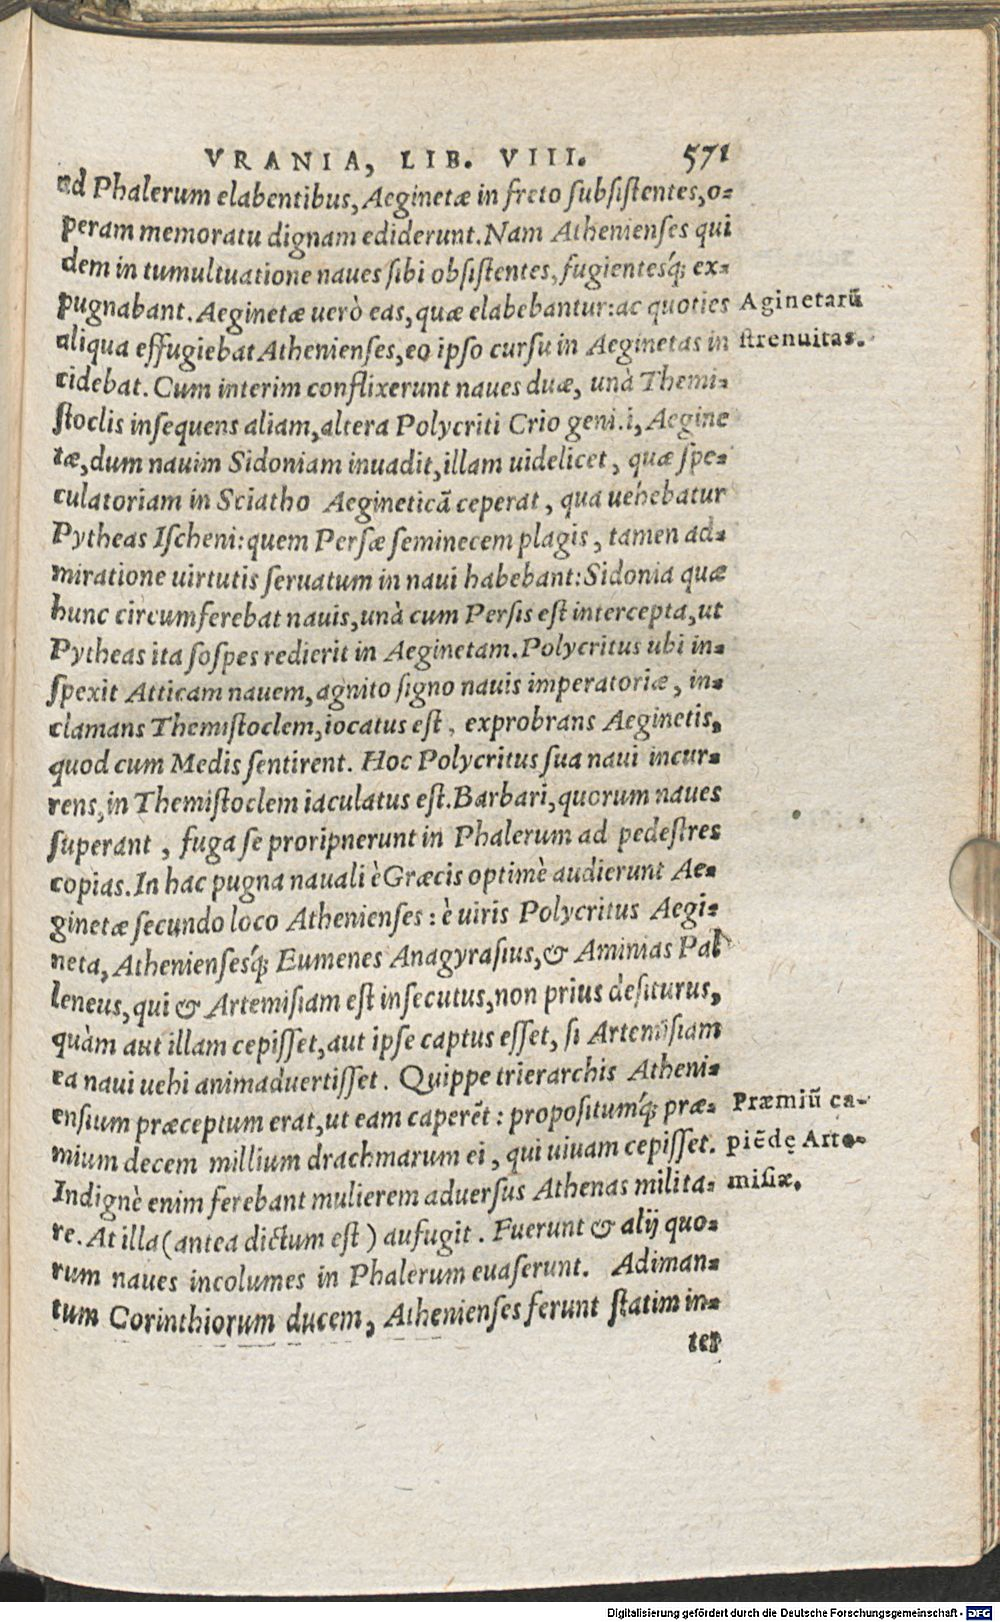 VRANIA, LIB. VIII. 571
ad Phalerum elabentibus, Aeginetæ in freto subsistentes, o-
peram memoratu dignam ediderunt. Nam Athenienses qui
dem in tumultuatione naues sibi obsistentes, fugientesq́; ex-
pugnabant. Aeginetæ uerò eas, quæ elabebantur: ac quoties
Aginetarũ
aliqua effugiebat Athenienses, eo ipso cursu in Aeginetas in
strenuitas.
cidebat. Cum interim conflixerunt naues duæ, unà Themi-
stoclis insequens aliam, altera Polycriti Crio geni.i, Aegine
tæ, dum nauim Sidoniam inuadit, illam uidelicet, quæ spe-
culatoriam in Sciatho Aegineticã ceperat, qua uehebatur
Pytheas Ischeni: quem Persæ seminecem plagis, tamen ad-
miratione uirtutis seruatum in naui habebant: Sidonia quæ
hunc circumferebat nauis, unà cum Persis est intercepta, ut
Pytheas ita sospes redierit in Aeginetam. Polycritus ubi in-
spexit Atticam nauem, agnito signo nauis imperatoriæ, in-
clamans Themistoclem, iocatus est, exprobrans Aeginetis,
quod cum Medis sentirent. Hoc Polycritus sua naui incur-
rens, in Themistoclem iaculatus est. Barbari, quorum naues
superant, fuga se proripnerunt in Phalerum ad pedestres
copias. In hac pugna nauali è Græcis optimè audierunt Ae-
ginetæ secundo loco Athenienses: è uiris Polycritus Aegi-
neta, Atheniensesq́; Eumenes Anagyrasius, & Aminias Pal
leneus, qui & Artemisiam est insecutus, non prius desiturus,
quàm aut illam cepisset, aut ipse captus esset, si Artemisiam
ea naui uehi animaduertisset. Quippe trierarchis Atheni-
ensium præceptum erat, ut eam caperẽt: propositumq́; præ-
Præmiũ ca-
mium decem millium drachmarum ei, qui uiuam cepisset.
piẽdę Arte-
Indignè enim ferebant mulierem aduersus Athenas milita-
misiæ.
re. At illa (antea dictum est) aufugit. Fuerunt & alij quo-
rum naues incolumes in Phalerum euaserunt. Adiman-
tum Corinthiorum ducem, Athenienses ferunt statim in-
ter
Digitalisierung gefördert durch die Deutsche Forschungsgemeinschaft - DFG